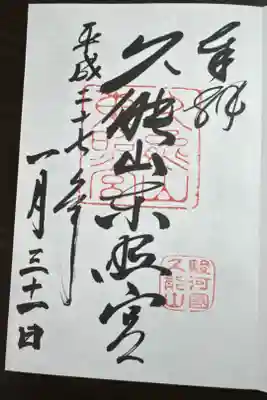 奉拝
久能山東照宮
平成二十七年
一月三十一日
駿河國
久能山